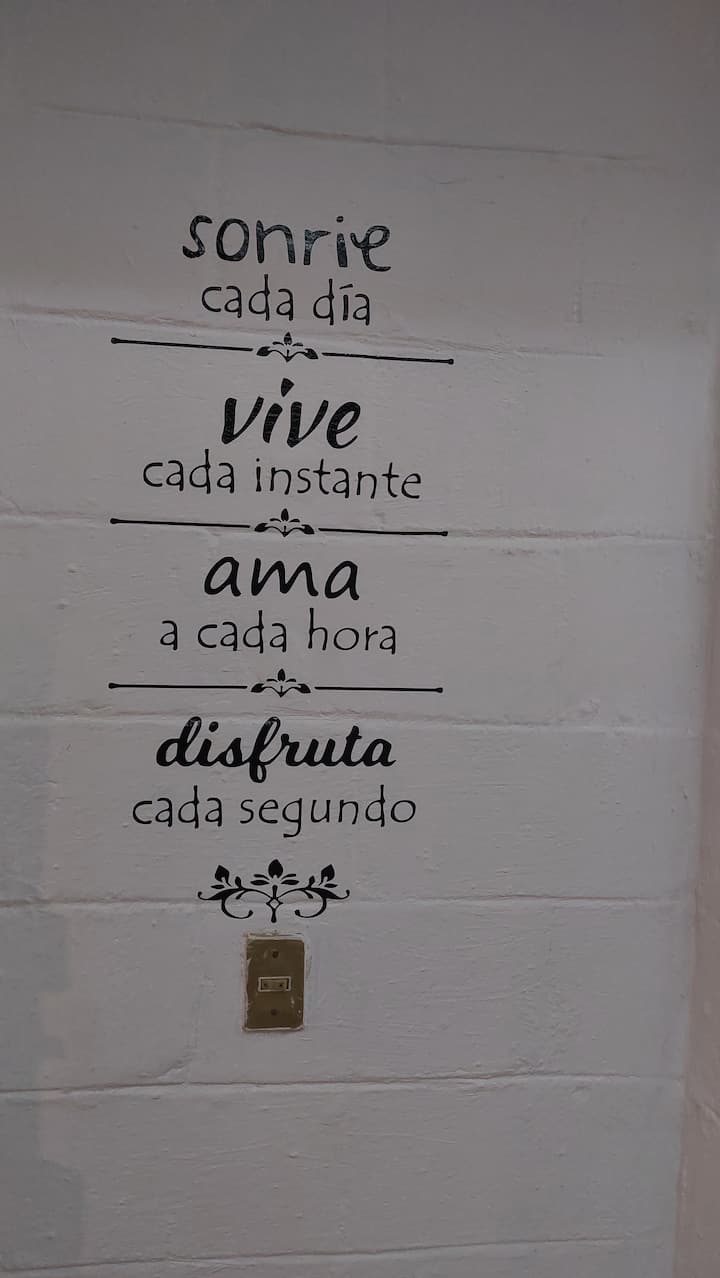 sonrie
cada día
vive
cada instante
ama
a cada hora
disfruta
cada segundo